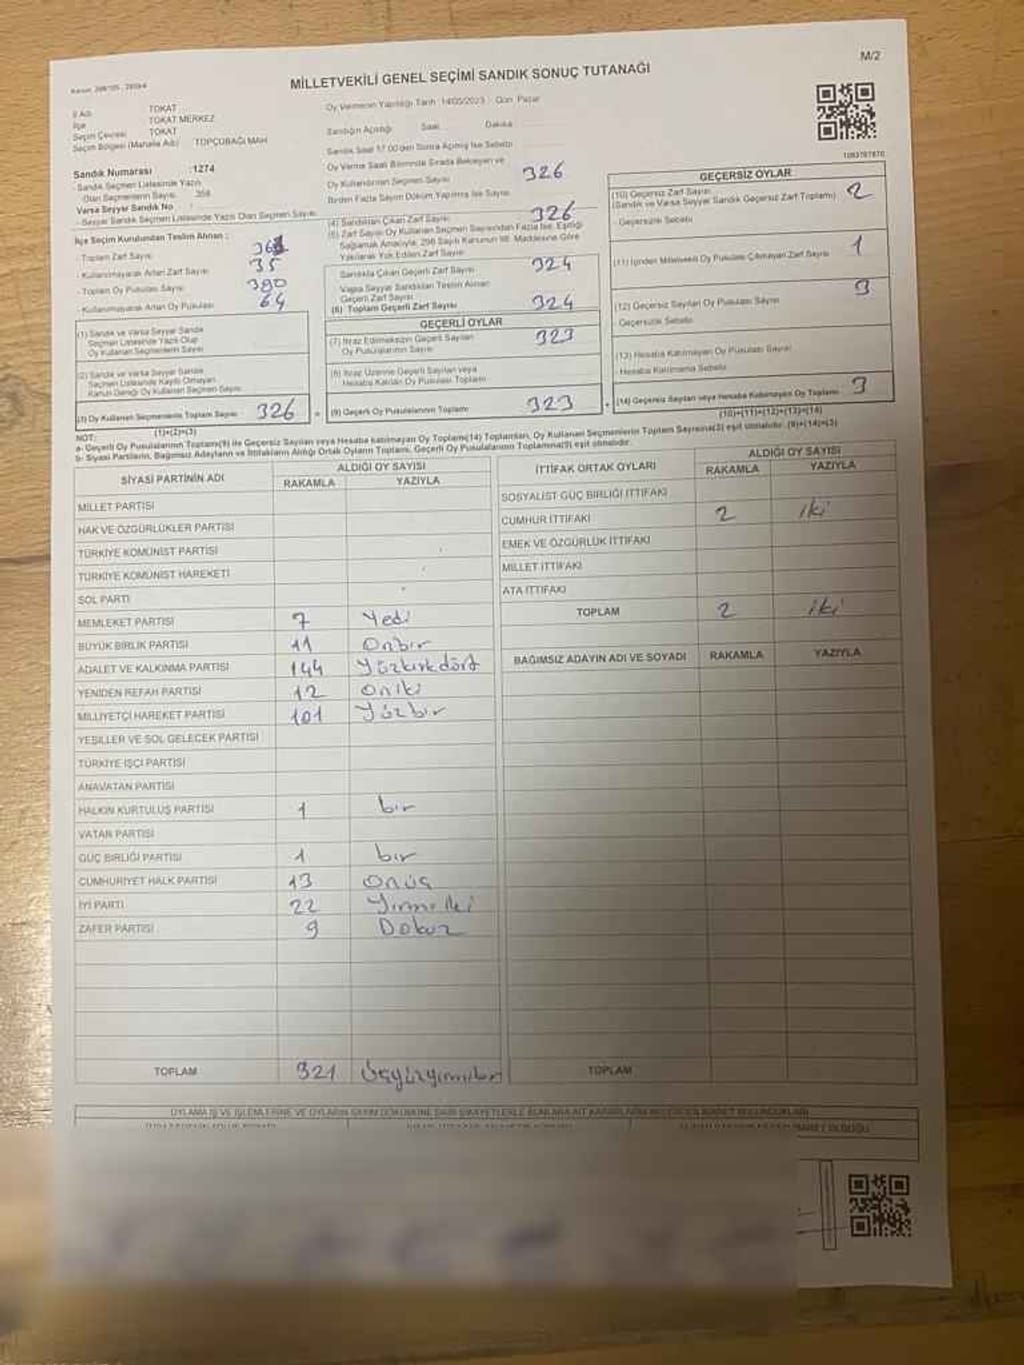 M/2
MİLLETVEKİLİ GENEL SEÇİMİ SANDIK SONUÇ TUTANAĞI
İl Adı TOKAT
İlçe TOKAT MERKEZ
Seçim Çevresi TOKAT
Seçim Bölgesi (Mahalle Adı) TOPÇUBAĞI MAH
Sandık Numarası :1274
- Sandık Seçmen Listesinde Yazılı
Olan Seçmenlerin Sayısı 358
Varsa Seyyar Sandık No :
- Seyyar Sandık Seçmen Listesinde Yazılı Olan Seçmen Sayısı
İlçe Seçim Kurulundan Teslim Alınan :
- Toplam Zarf Sayısı
- Kullanılmayarak Artan Zarf Sayısı 35
- Toplam Oy Pusulası Sayısı 390
- Kullanılmayarak Artan Oy Pusulası 64
(1) Sandık ve Varsa Seyyar Sandık
Seçmen Listesinde Yazılı Olup
Oy Kullanan Seçmenlerin Sayısı
(2) Sandık ve Varsa Seyyar Sandık
Seçmen Listesinde Kayıtlı Olmayan
Kanun Gereği Oy Kullanan Seçmen Sayısı
(3) Oy Kullanan Seçmenlerin Toplam Sayısı 326
(1)+(2)=(3)
Oy Vermenin Yapıldığı Tarih :14/05/2023 Gün: Pazar
Sandığın Açıldığı Saat Dakika
Sandık Saat 17:00'den Sonra Açılmış İse Sebebi
Oy Verme Saati Bitiminde Sırada Bekleyen ve
Oy Kullandırılan Seçmen Sayısı 326
Birden Fazla Sayım Döküm Yapılmış İse Sayısı
(4) Sandıktan Çıkan Zarf Sayısı 326
(5) Zarf Sayısı Oy Kullanan Seçmen Sayısından Fazla İse, Eşitliği
Sağlamak Amacıyla, 298 Sayılı Kanunun 98. Maddesine Göre
Yakılarak Yok Edilen Zarf Sayısı
Sandıkta Çıkan Geçerli Zarf Sayısı 324
Varsa Seyyar Sandıktan Teslim Alınan
Geçerli Zarf Sayısı
(6) Toplam Geçerli Zarf Sayısı 324
GEÇERLİ OYLAR
(7) İtiraz Edilmeksizin Geçerli Sayılan
Oy Pusulalarının Sayısı 323
(8) İtiraz Üzerine Geçerli Sayılan veya
Hesaba Katılan Oy Pusulası Toplamı
(9) Geçerli Oy Pusulalarının Toplamı 323
1093787870
GEÇERSİZ OYLAR
(10) Geçersiz Zarf Sayısı
(Sandık ve Varsa Seyyar Sandık Geçersiz Zarf Toplamı) 2
- Geçersizlik Sebebi
(11) İçinden Milletvekili Oy Pusulası Çıkmayan Zarf Sayısı 1
(12) Geçersiz Sayılan Oy Pusulası Sayısı
Geçersizlik Sebebi
(13) Hesaba Katılmayan Oy Pusulası Sayısı
- Hesaba Katılmama Sebebi
(14) Geçersiz Sayılan veya Hesaba Katılmayan Oy Toplamı 3
(10)+(11)+(12)+(13)=(14)
NOT:
a- Geçerli Oy Pusulalarının Toplamı(9) ile Geçersiz Sayılan veya Hesaba katılmayan Oy Toplamı(14) Toplamları, Oy Kullanan Seçmenlerin Toplam Sayısına(3) eşit olmalıdır. (9)+(14)=(3)
b- Siyasi Partilerin, Bağımsız Adayların ve İttifakların Aldığı Ortak Oyların Toplamı, Geçerli Oy Pusulalarının Toplamına(9) eşit olmalıdır.
SİYASİ PARTİNİN ADI ALDIĞI OY SAYISI
RAKAMLA YAZIYLA
MİLLET PARTİSİ
HAK VE ÖZGÜRLÜKLER PARTİSİ
TÜRKİYE KOMÜNİST PARTİSİ
TÜRKİYE KOMÜNİST HAREKETİ
SOL PARTİ
MEMLEKET PARTİSİ 7 Yedi
BÜYÜK BİRLİK PARTİSİ 11 Onbir
ADALET VE KALKINMA PARTİSİ 144 Yüzkırkdört
YENİDEN REFAH PARTİSİ 12 oniki
MİLLİYETÇİ HAREKET PARTİSİ 101 Yüzbir
YEŞİLLER VE SOL GELECEK PARTİSİ
TÜRKİYE İŞÇİ PARTİSİ
ANAVATAN PARTİSİ
HALKIN KURTULUŞ PARTİSİ 1 bir
VATAN PARTİSİ
GÜÇ BİRLİĞİ PARTİSİ 1 bir
CUMHURİYET HALK PARTİSİ 13 onüç
İYİ PARTİ 22 Yirmiiki
ZAFER PARTİSİ 9 Dokuz
TOPLAM 321 Üçyüzyirmibir
İTTİFAK ORTAK OYLARI ALDIĞI OY SAYISI
RAKAMLA YAZIYLA
SOSYALİST GÜÇ BİRLİĞİ İTTİFAKI
CUMHUR İTTİFAKI 2 iki
EMEK VE ÖZGÜRLÜK İTTİFAKI
MİLLET İTTİFAKI
ATA İTTİFAKI
TOPLAM 2 iki
BAĞIMSIZ ADAYIN ADI VE SOYADI RAKAMLA YAZIYLA
TOPLAM
OYLAMA İŞ VE İŞLEMLERİNE VE OYLARIN SAYIM DÖKÜMÜNE DAİR ŞİKAYETLERLE BUNLARA AİT KARARLARIN